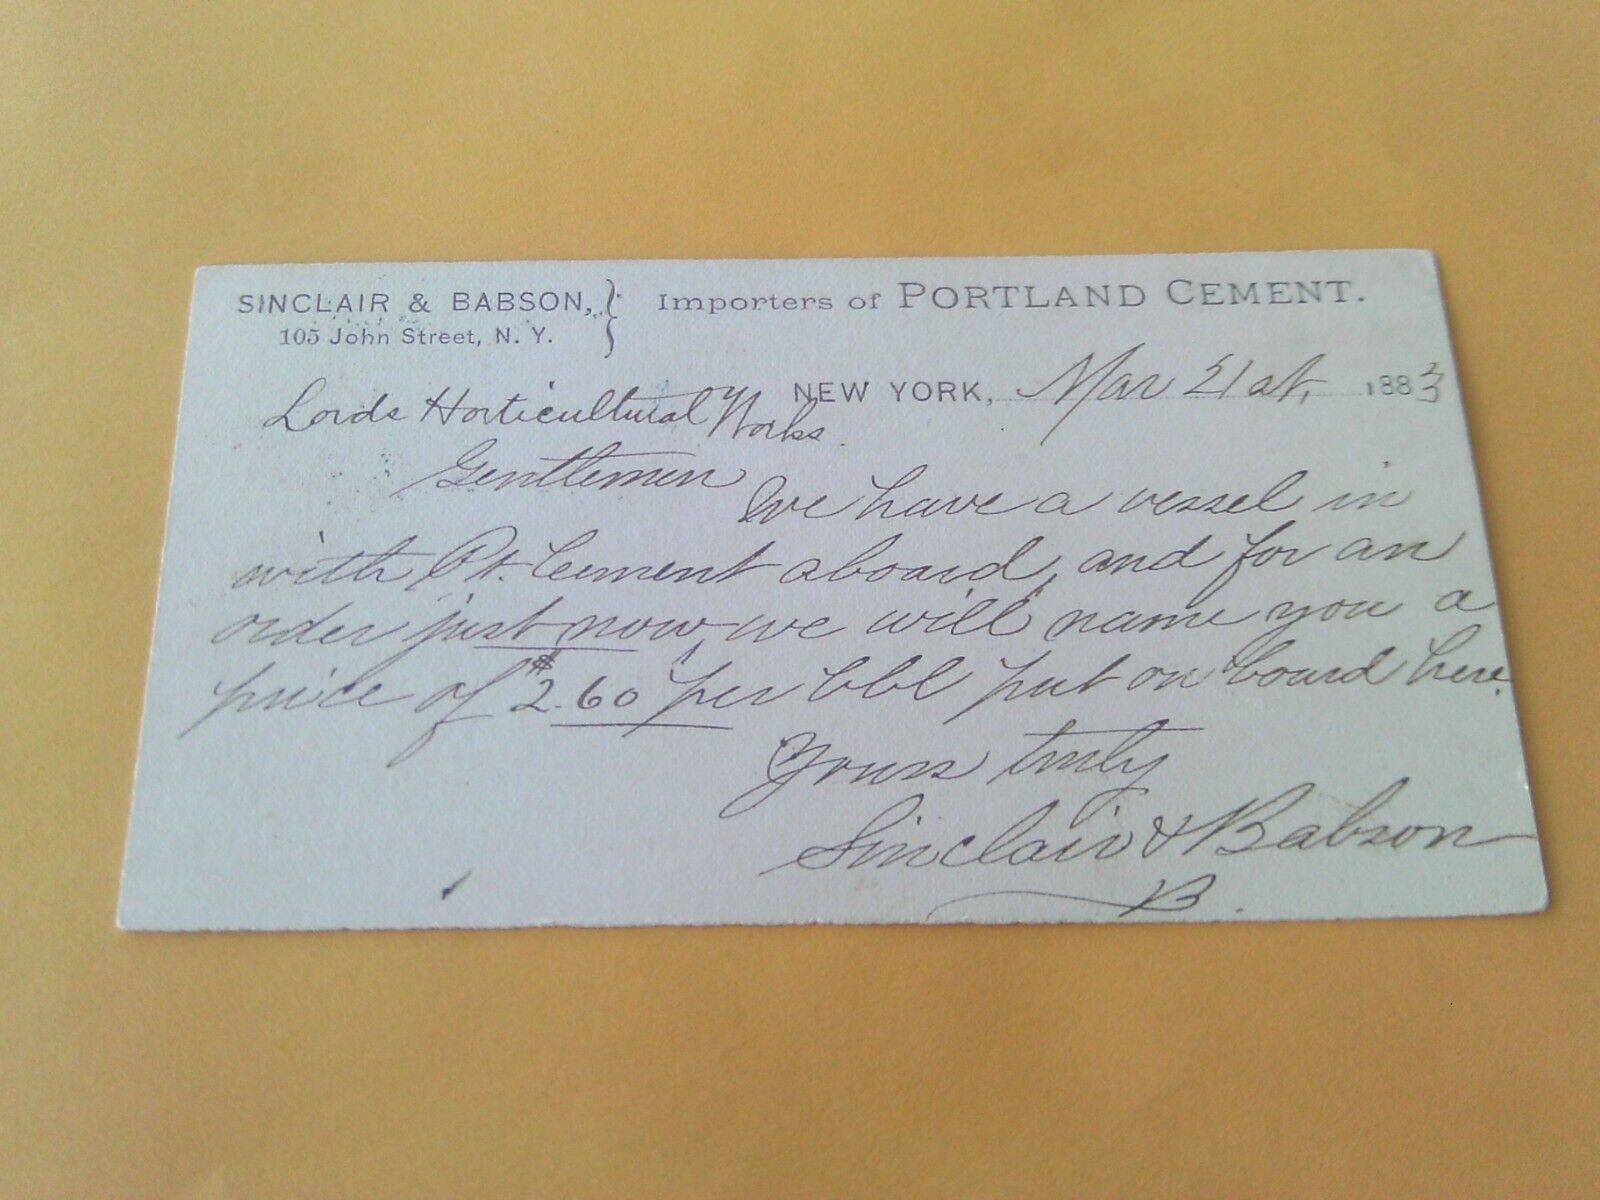 SINCLAIR & BABSON, } Importers of PORTLAND CEMENT.
105 John Street, N. Y.
NEW YORK, Mar 21st, 1883
Lords Horticultural Works.
Gentlemen
We have a vessel in
with Pt. Cement aboard, and for an
order just now, we will name you a
price of $2.60 per bbl put on board here.
Yours truly
Sinclair & Babson
B.